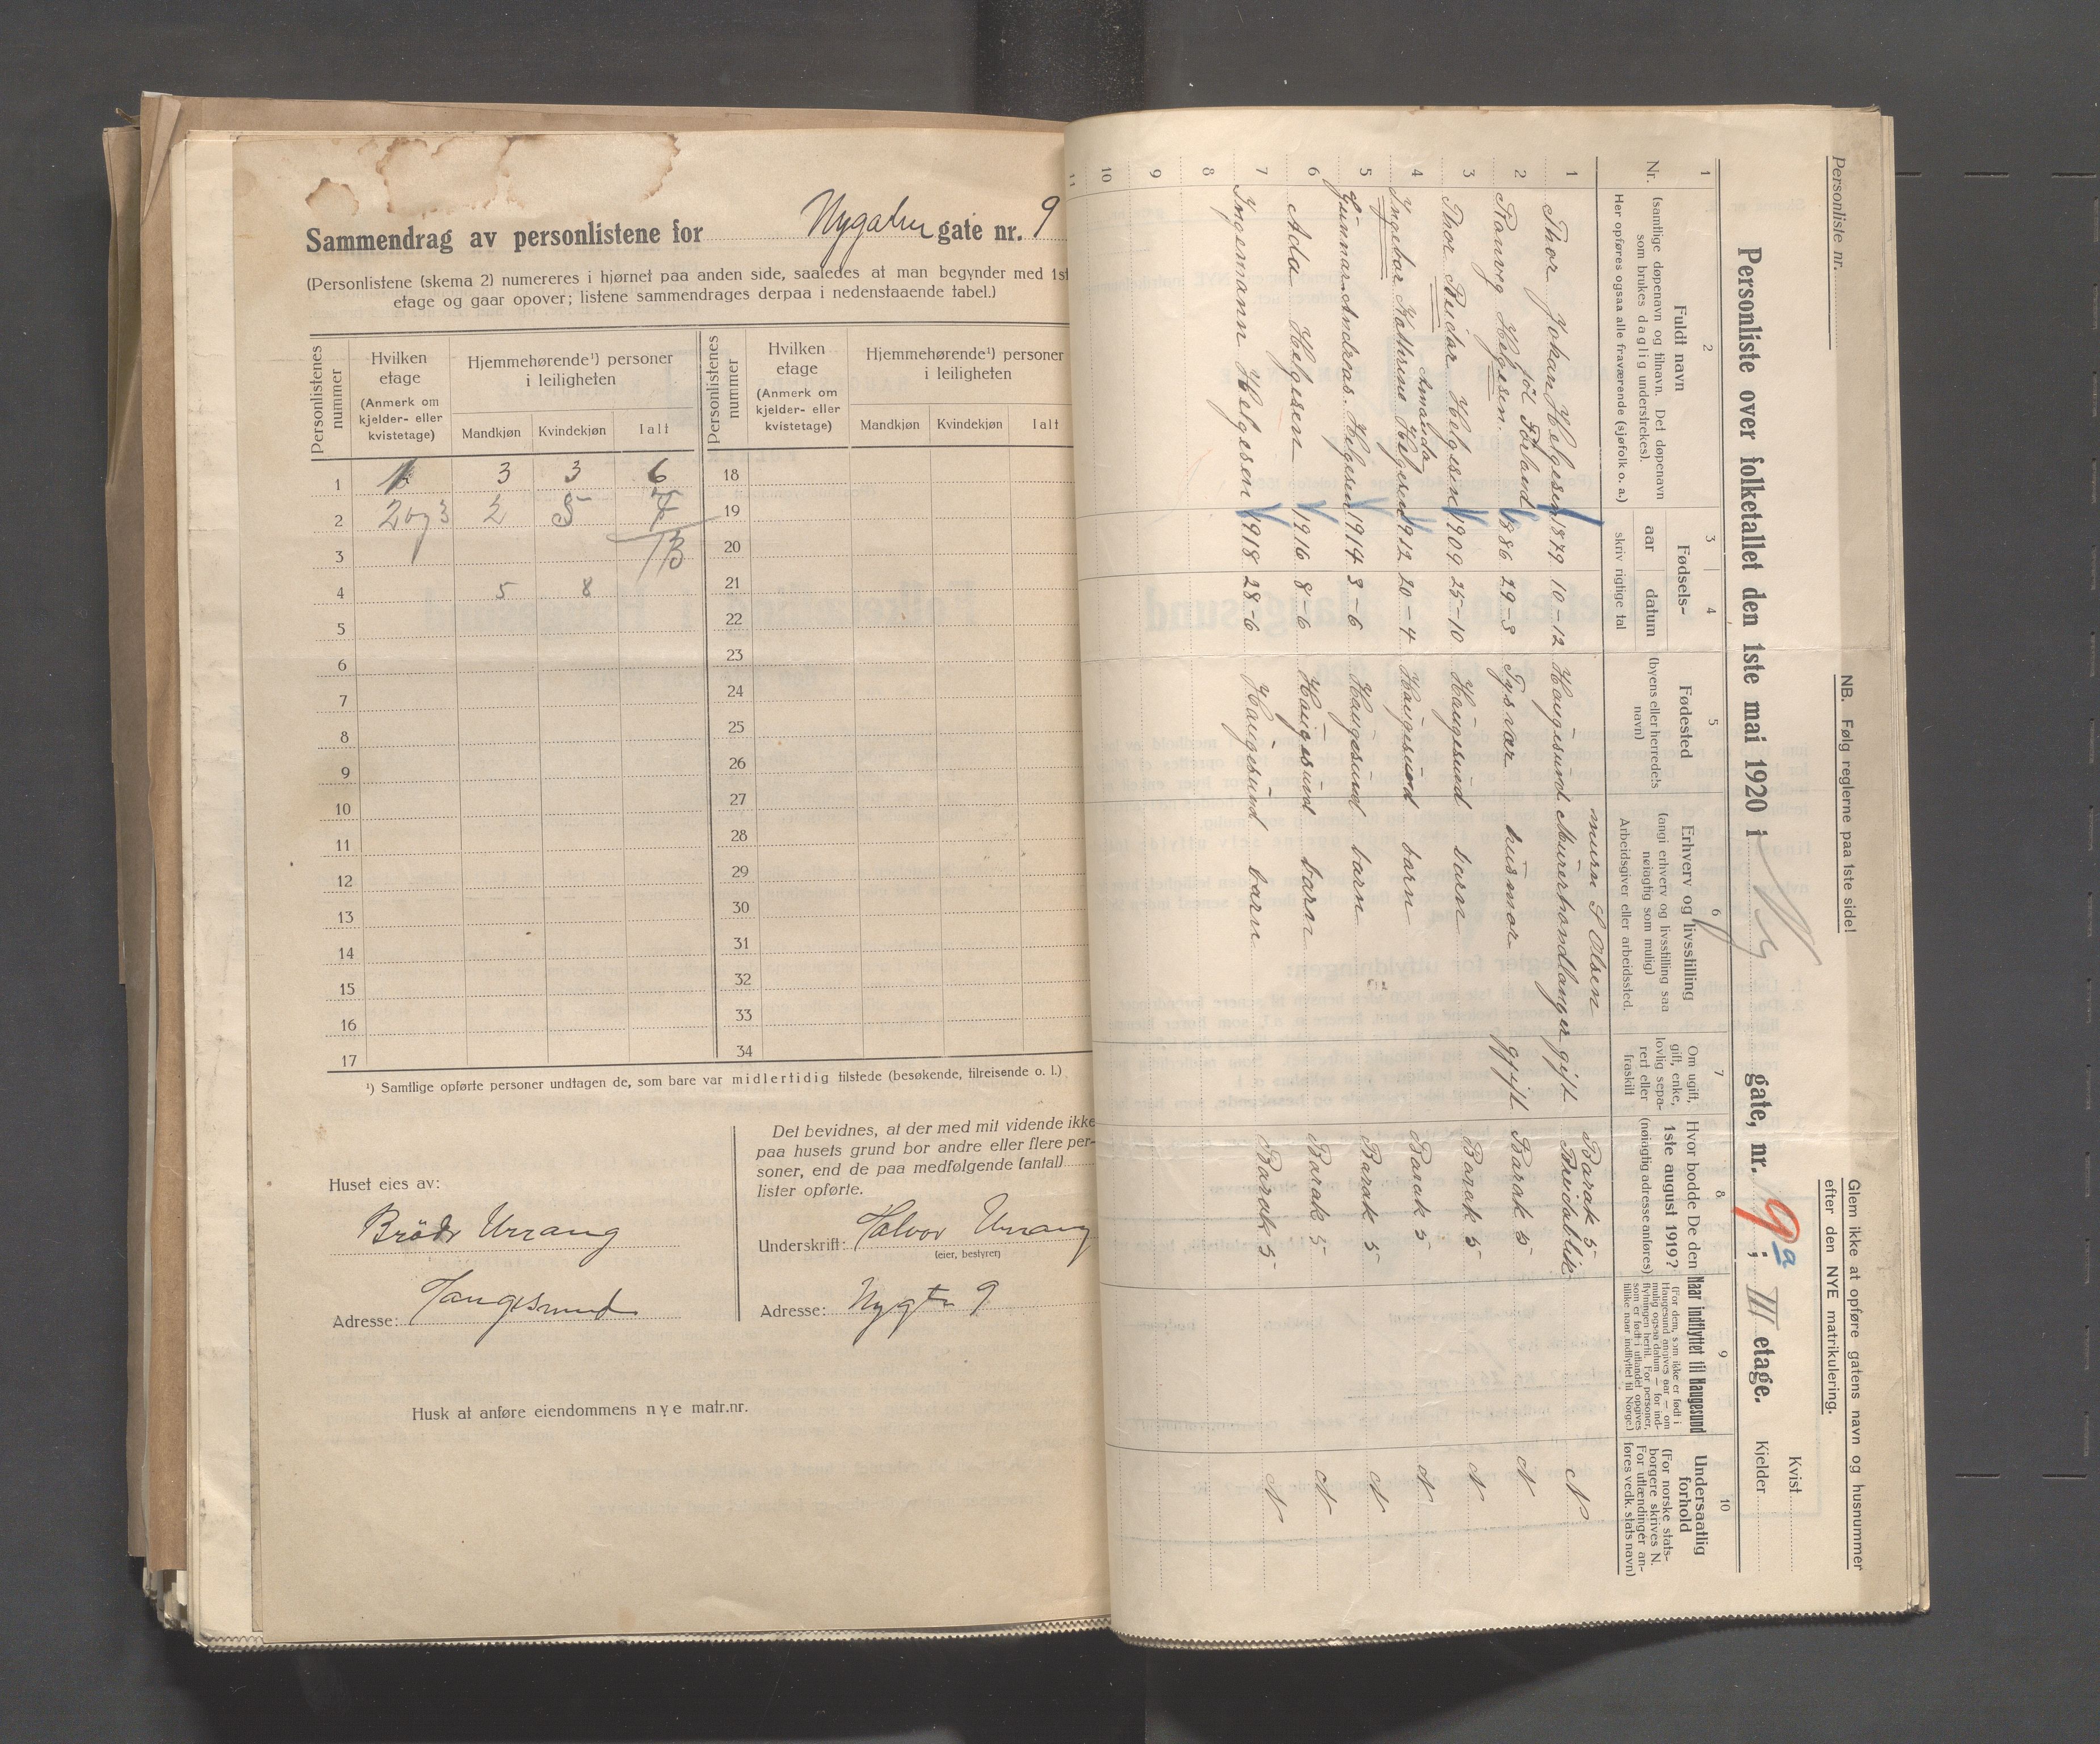 Sammendrag av personlistene for Nygaten gate nr. 9
(Personlistene (skema 2) numereres i hjørnet paa anden side, saaledes at man begynder med 1ste
etage og gaar opover; listene sammendrages derpaa i nedenstaaende tabel.)
Personlistenes nummer
Hvilken etage
(Anmerk om kjelder- eller kvistetage)
Hjemmehørende¹) personer i leiligheten
Mandkjøn Kvindekjøn Ialt
Personlistenes nummer
Hvilken etage
(Anmerk om kjelder- eller kvistetage)
Hjemmehørende¹) personer i leiligheten
Mandkjøn Kvindekjøn Ialt
1 1 3 3 6 18
2 2 og 3 2 5 7 19
3 13 20
4 5 8 21
5 22
6 23
7 24
8 25
9 26
10 27
11 28
12 29
13 30
14 31
15 32
16 33
17 34
¹) Samtlige opførte personer undtagen de, som bare var midlertidig tilstede (besøkende, tilreisende o. l.)
Huset eies av:
Brødr Urrang
Adresse: Haugesund
Det bevidnes, at der med mit vidende ikke
paa husets grund bor andre eller flere per-
soner, end de paa medfølgende (antal)
lister opførte.
Underskrift: Halvor Urrang
(eier, bestyrer)
Adresse: Nygtn 9
Husk at anføre eiendommens nye matr.nr.
Personliste nr.
NB. Følg reglerne paa 1ste side!
Glem ikke at opføre gatens navn og husnummer
efter den NYE matrikulering.
Personliste over folketallet den 1ste mai 1920 i Ny gate, nr. 9a ; III etage.
Kvist
Kjelder
1 2 3 4 5 6 7 8 9 10
Nr.
Fuldt navn
(samtlige døpenavn og tilnavn. Det døpenavn
som brukes daglig understrekes).
Her opføres ogsaa alle fraværende (sjøfolk o. a.)
Fødsels-
aar datum
skriv rigtige tal
Fødested
(byens eller herredets
navn)
Erhverv og livsstilling
(angi erhverv og livsstilling saa
nøiagtig som mulig)
Arbeidsgiver eller arbeidssted.
Om ugift,
gift, enke,
lovlig sepa-
rert eller
fraskilt
Hvor bodde De den
1ste august 1919?
(nøiagtig adresse anføres)
Naar indflyttet til Haugesund
(For dem, som ikke er født i
Haugesund angives aar — om
mulig ogsaa datum — for ind-
flytningen hertil. For personer,
som er født i utlandet opgives
tillike naar indflyttet til Norge.)
Undersaatlig
forhold
(For norske stats-
borgere skrives N.
For utlændinger an-
føres vedk. stats navn)
murm S Olsen Barak 5
1 Thor Johan Helgesen 1879 10-12 Haugesund Murerhandlanger gift N
föt Förland
2 Ranveg Helgesen. 1886 29-3 Tysvær husmor gift Barak 5 N
3 Thor Reidar Helgesen 1909 25-10 Haugesund barn Barak 5 N
Amanda
4 Ingebor Kathrine Helgesen 1912 20-4 Haugesund barn Barak 5 N
5 Gunnar Andreas. Helgesen 1914 3-6 Haugesund barn Barak 5 N
6 Ada Helgesen 1916 8-6 Haugesund barn Barak 5 N
7 Ingemann Helgesen 1918 28-6 Haugesund barn Barak 5 N
8
9
10
11